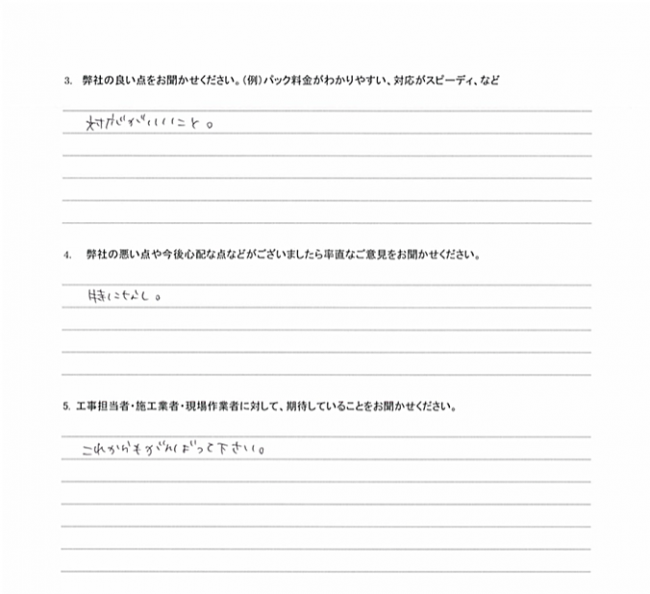 3. 弊社の良い点をお聞かせください。(例)パック料金がわかりやすい、対応がスピーディ、など
対応がいいこと。
4. 弊社の悪い点や今後心配な点などがございましたら率直なご意見をお聞かせください。
特になし。
5. 工事担当者・施工業者・現場作業者に対して、期待していることをお聞かせください。
これからもがんばって下さい。